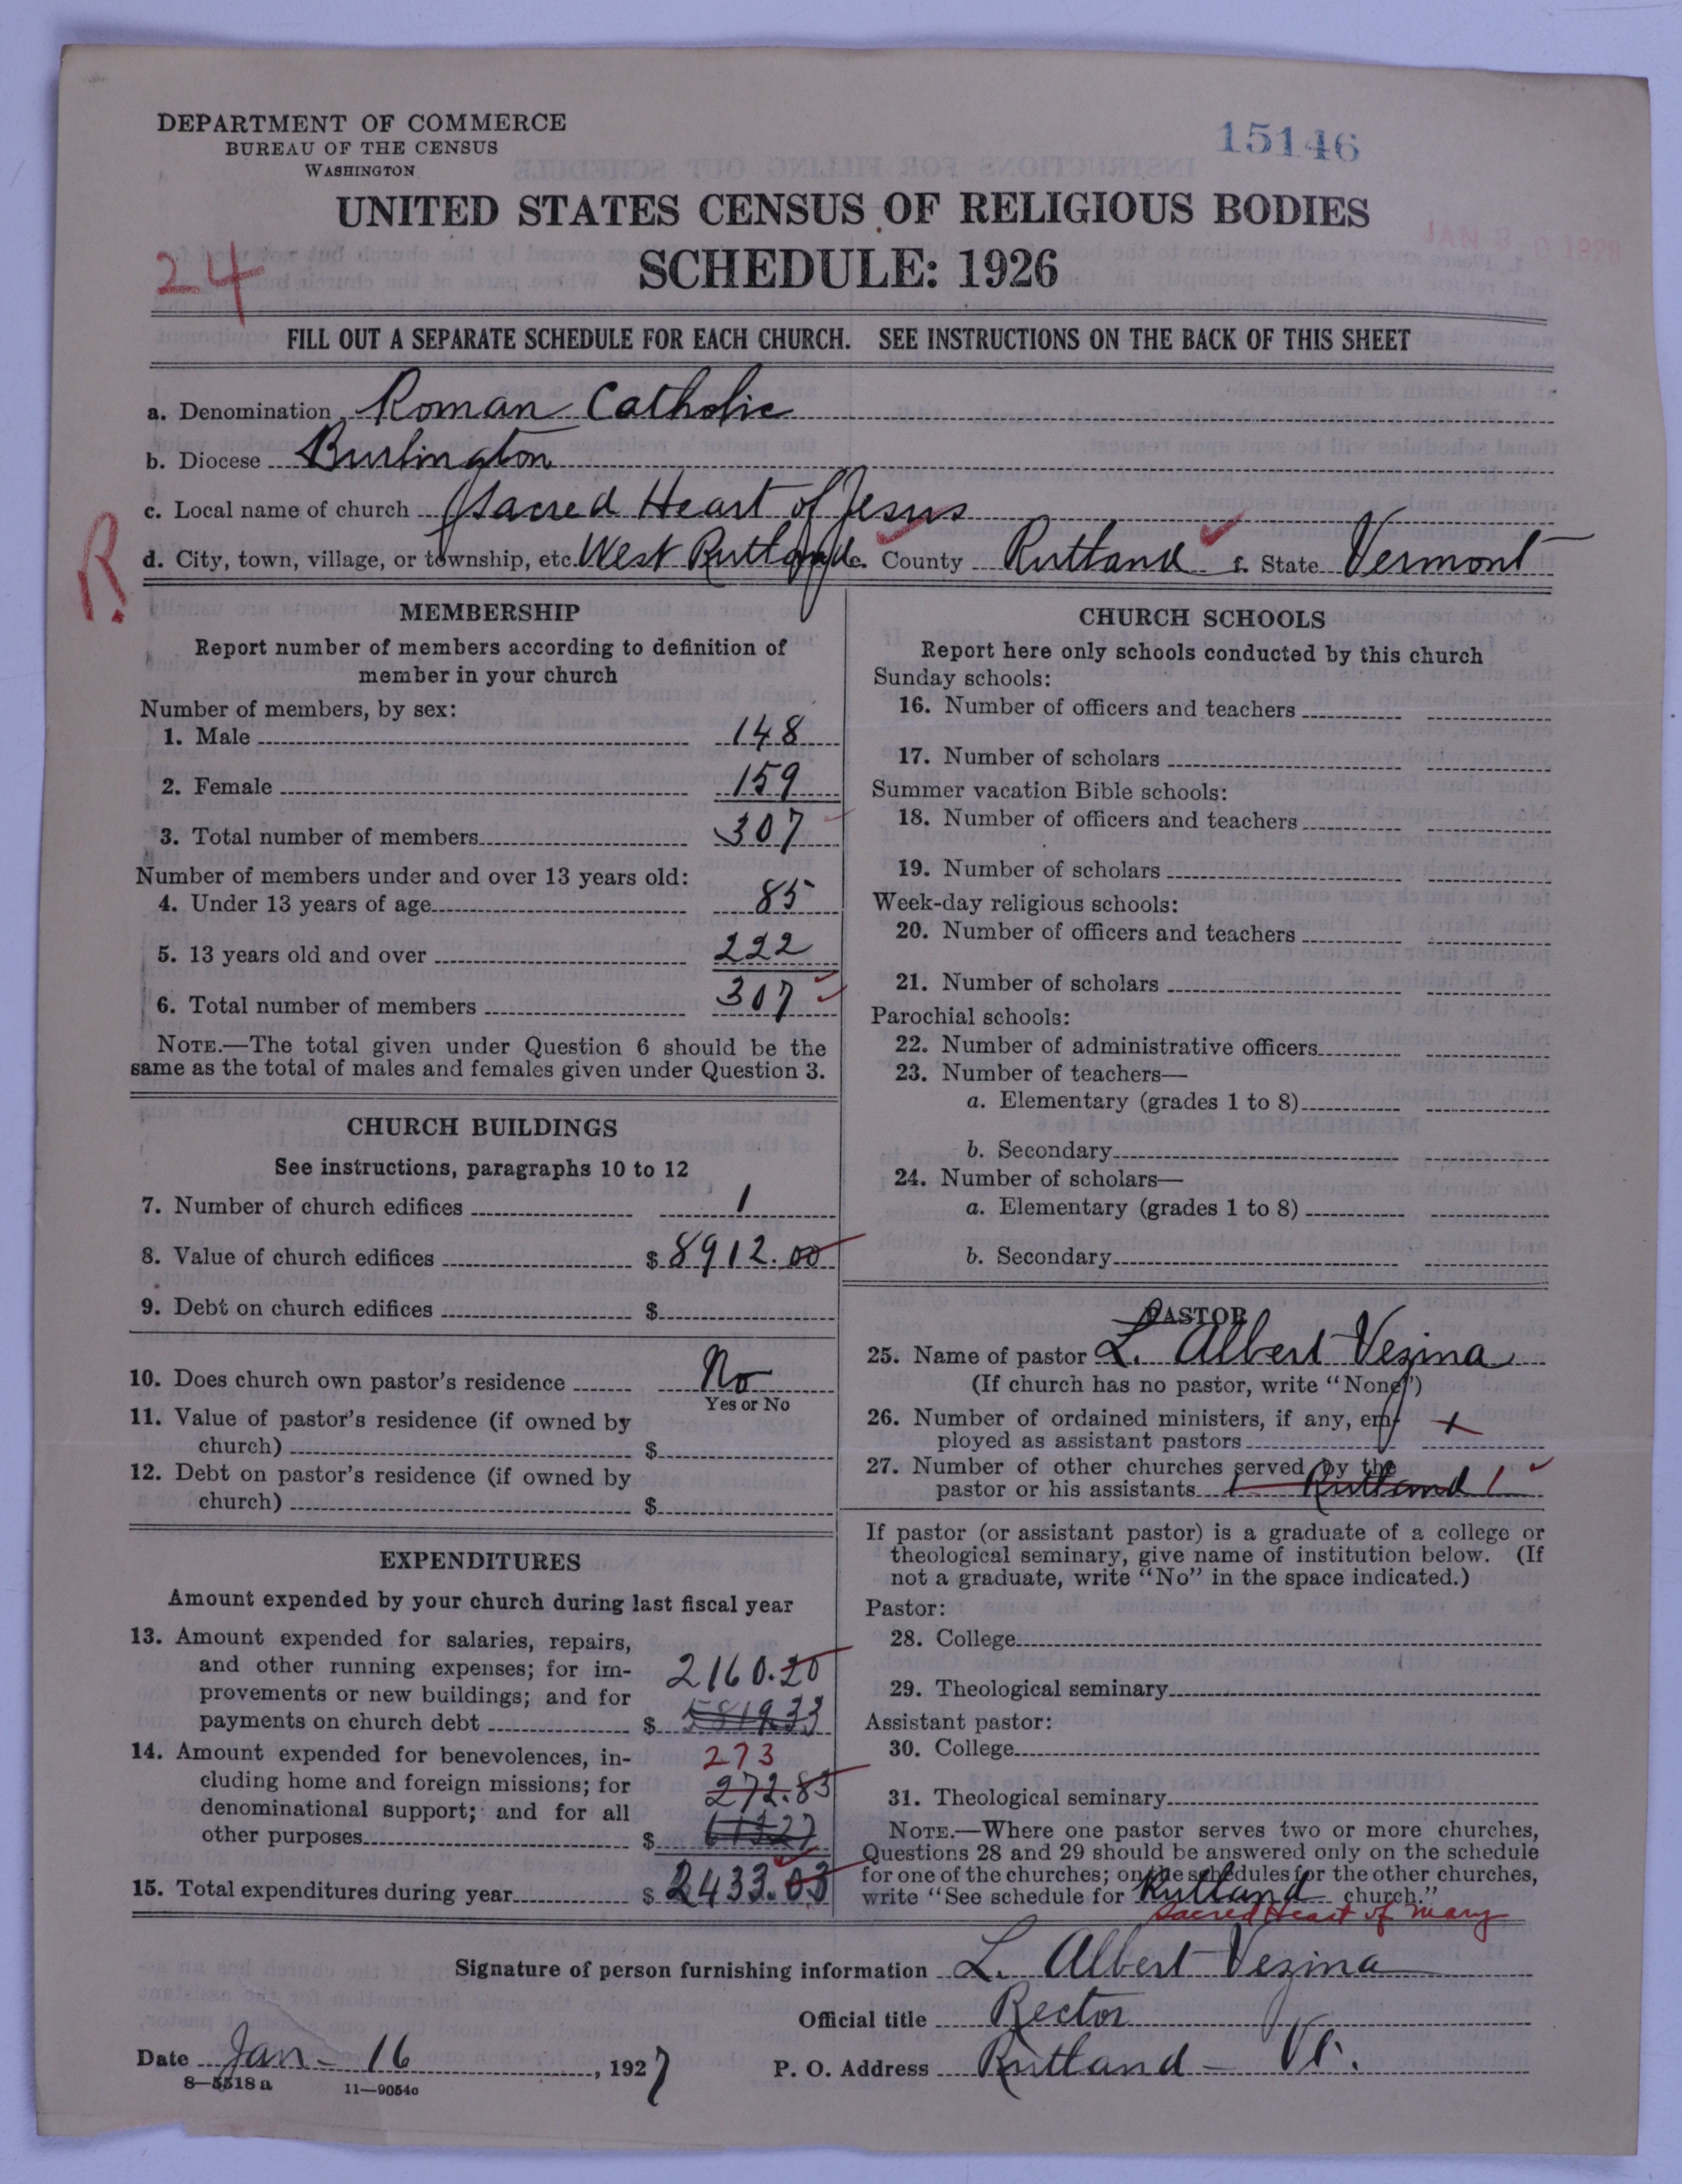 DEPARTMENT OF COMMERCE
BUREAU OF THE CENSUS
WASHINGTON
15146
UNITED STATES CENSUS OF RELIGIOUS BODIES
SCHEDULE: 1926
24
FILL OUT A SEPARATE SCHEDULE FOR EACH CHURCH. SEE INSTRUCTIONS ON THE BACK OF THIS SHEET
a. Denomination Roman Catholic
b. Diocese Burlington
c. Local name of church Sacred Heart of Jesus
R.
d. City, town, village, or township, etc. West Rutland e. County Rutland f. State Vermont
MEMBERSHIP
Report number of members according to definition of
member in your church
Number of members, by sex:
1. Male 148
2. Female 159
3. Total number of members 307
Number of members under and over 13 years old:
4. Under 13 years of age 85
5. 13 years old and over 222
6. Total number of members 307
NOTE.—The total given under Question 6 should be the
same as the total of males and females given under Question 3.
CHURCH BUILDINGS
See instructions, paragraphs 10 to 12
7. Number of church edifices 1
8. Value of church edifices $ 8912.00
9. Debt on church edifices $
10. Does church own pastor's residence No
Yes or No
11. Value of pastor's residence (if owned by
church) $
12. Debt on pastor's residence (if owned by
church) $
EXPENDITURES
Amount expended by your church during last fiscal year
13. Amount expended for salaries, repairs,
and other running expenses; for im-
provements or new buildings; and for 2160.20
payments on church debt $
14. Amount expended for benevolences, in- 273
cluding home and foreign missions; for 272.83
denominational support; and for all
other purposes $
15. Total expenditures during year $ 2433.03
CHURCH SCHOOLS
Report here only schools conducted by this church
Sunday schools:
16. Number of officers and teachers
17. Number of scholars
Summer vacation Bible schools:
18. Number of officers and teachers
19. Number of scholars
Week-day religious schools:
20. Number of officers and teachers
21. Number of scholars
Parochial schools:
22. Number of administrative officers
23. Number of teachers—
a. Elementary (grades 1 to 8)
b. Secondary
24. Number of scholars—
a. Elementary (grades 1 to 8)
b. Secondary
PASTOR
25. Name of pastor L. Albert Vezina
(If church has no pastor, write "None")
26. Number of ordained ministers, if any, em- x
ployed as assistant pastors
27. Number of other churches served by the
pastor or his assistants 1 Rutland 1
If pastor (or assistant pastor) is a graduate of a college or
theological seminary, give name of institution below. (If
not a graduate, write "No" in the space indicated.)
Pastor:
28. College
29. Theological seminary
Assistant pastor:
30. College
31. Theological seminary
NOTE.—Where one pastor serves two or more churches,
Questions 28 and 29 should be answered only on the schedule
for one of the churches; on the schedules for the other churches,
write "See schedule for Rutland church."
Sacred Heart of Mary
Signature of person furnishing information L. Albert Vezina
Official title Rector
Date Jan - 16, 1927 P. O. Address Rutland - Vt.
8—5518 a 11—9054o